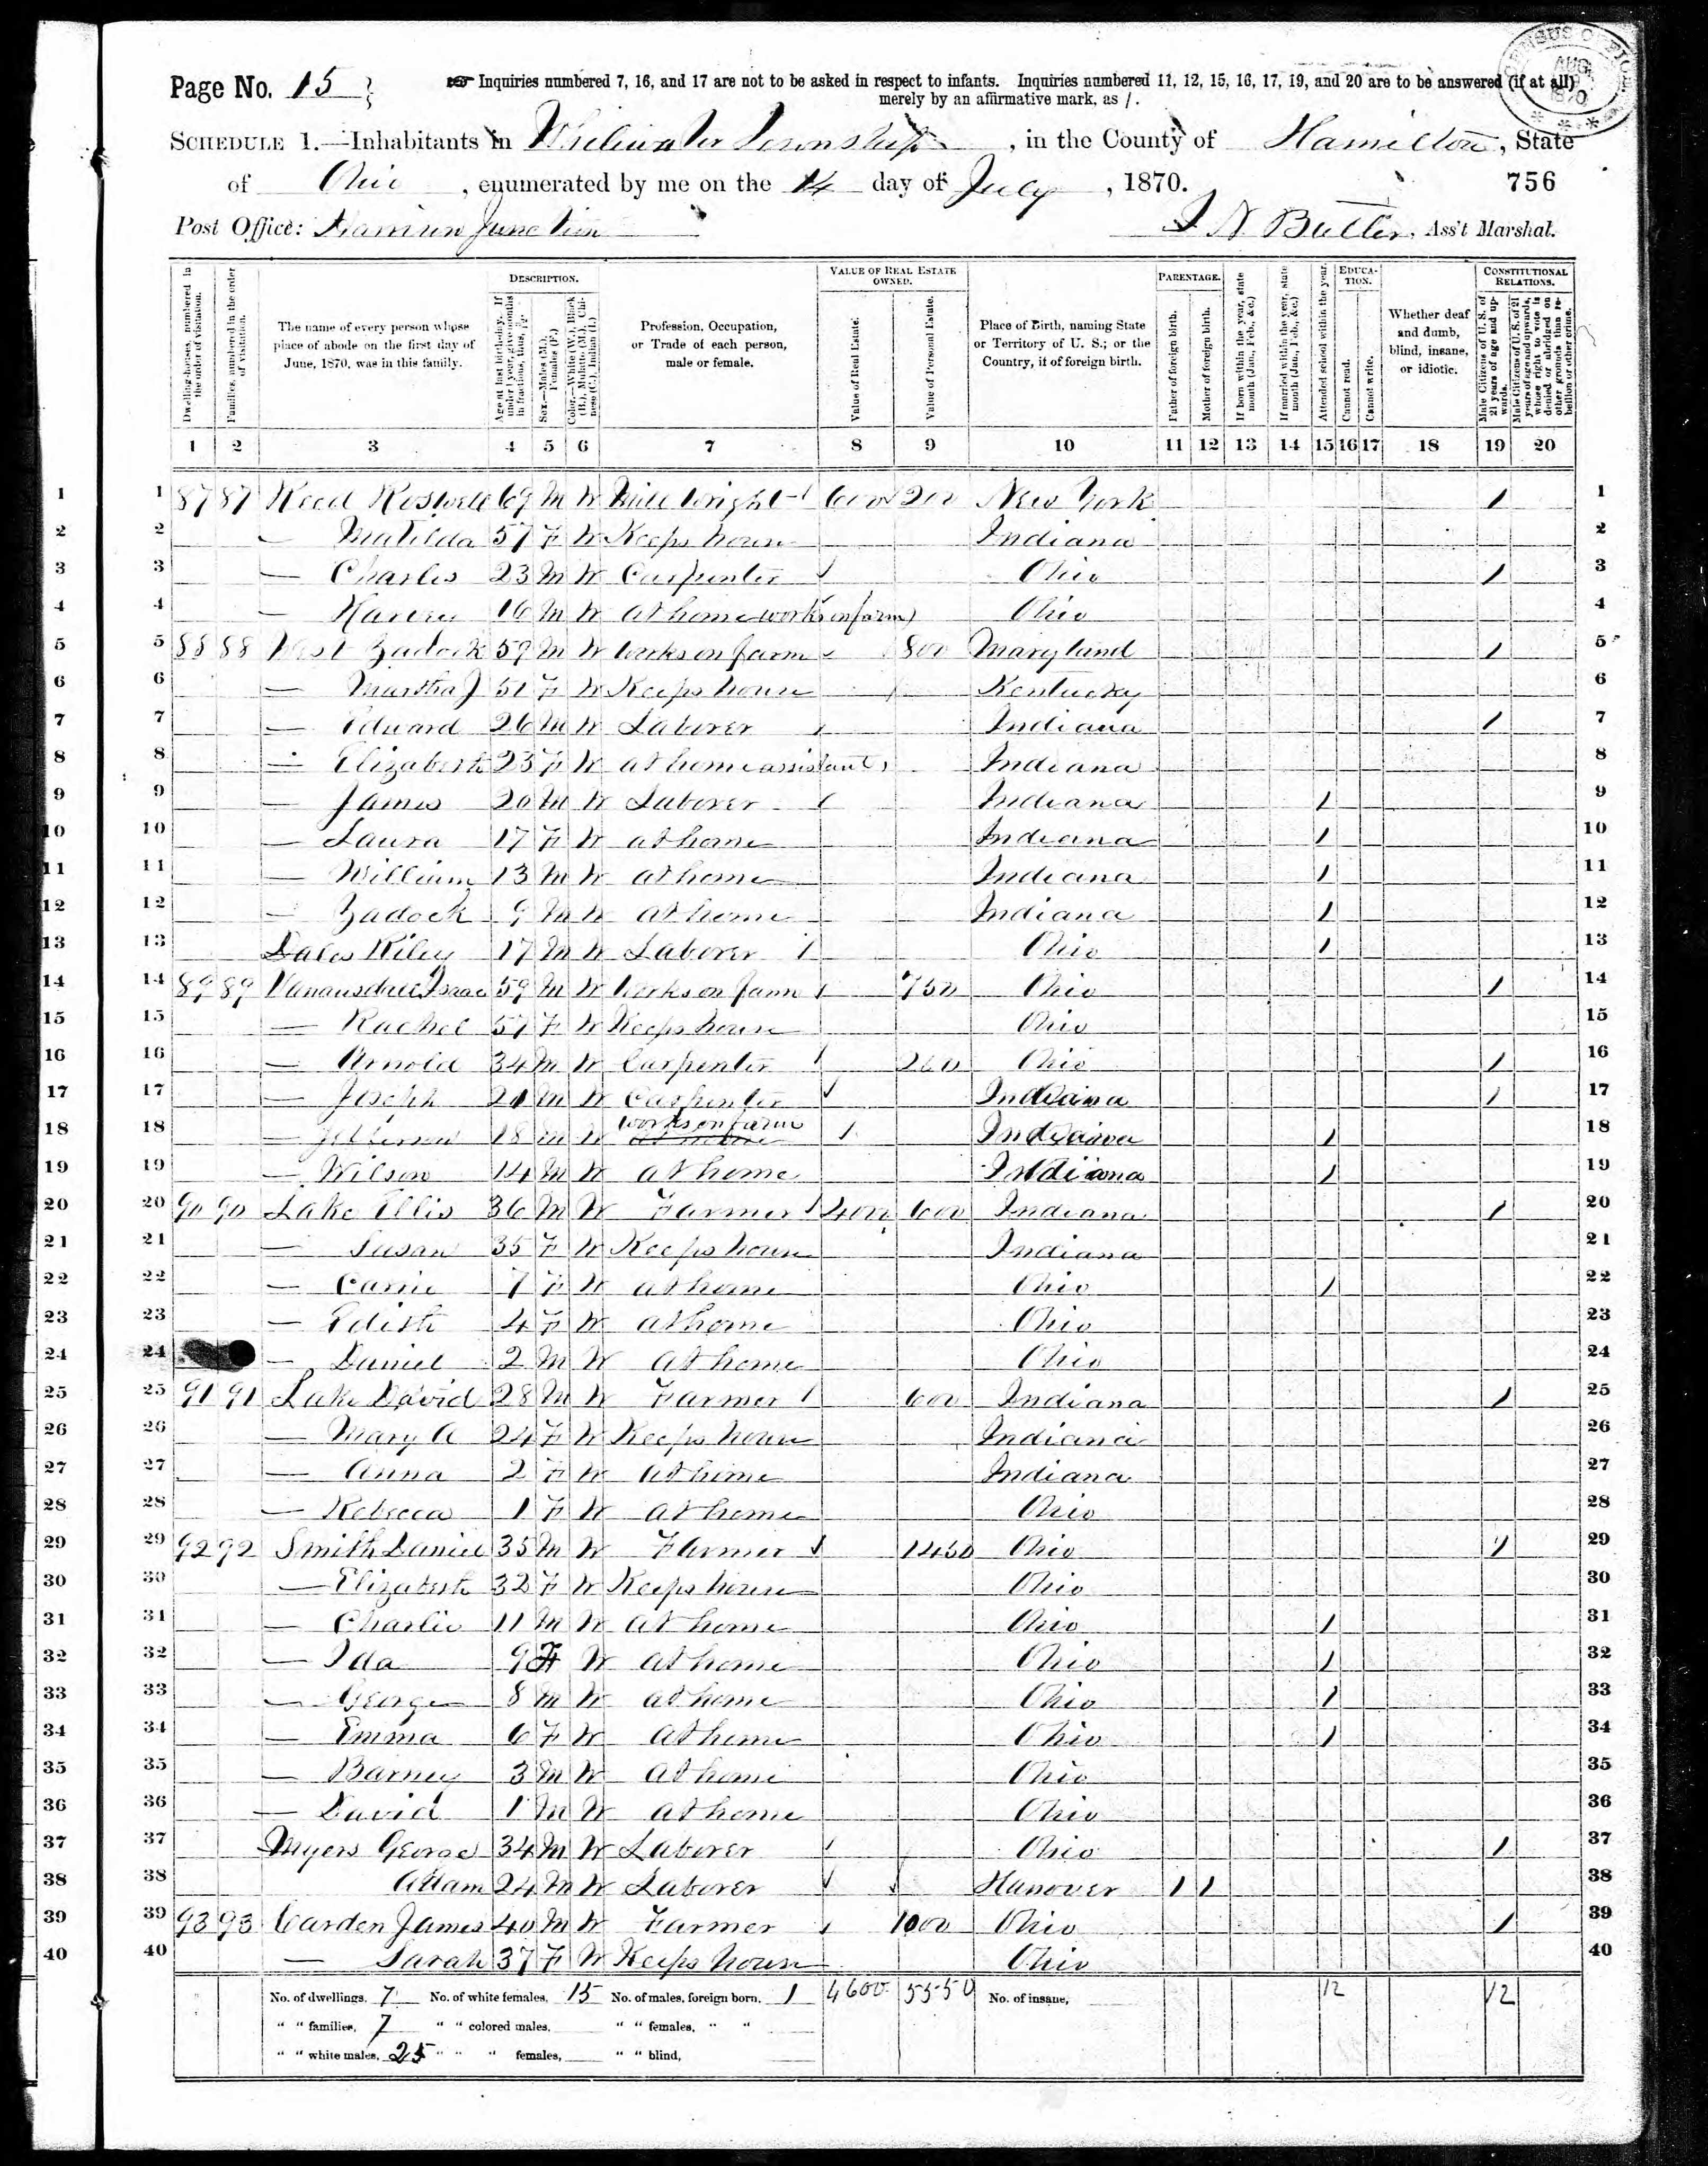 Page No. 15
Inquiries numbered 7, 16, and 17 are not to be asked in respect to infants. Inquiries numbered 11, 12, 15, 16, 17, 19, and 20 are to be answered (if at all)
merely by an affirmative mark, as /.
CENSUS OFFICE AUG 1870
SCHEDULE 1.—Inhabitants in Whitewater Township, in the County of Hamilton, State
of Ohio, enumerated by me on the 14 day of July, 1870. 756
Post Office: Junction N Butler, Ass't Marshal.
DESCRIPTION. VALUE OF REAL ESTATE OWNED. PARENTAGE. EDUCATION. CONSTITUTIONAL RELATIONS.
Dwelling-houses, numbered in the order of visitation.
Families, numbered in the order of visitation.
The name of every person whose place of abode on the first day of June, 1870, was in this family.
Age at last birth-day. If under 1 year, give months in fractions, thus,
Sex.—Males (M.), Females (F.)
Color.—White (W.), Black (B.), Mulatto (M.), Chinese (C.), Indian (I.)
Profession, Occupation, or Trade of each person, male or female.
Value of Real Estate.
Value of Personal Estate.
Place of Birth, naming State or Territory of U. S.; or the Country, if of foreign birth.
Father of foreign birth.
Mother of foreign birth.
If born within the year, state month (Jan., Feb., &c.)
If married within the year, state month (Jan., Feb., &c.)
Attended school within the year.
Cannot read.
Cannot write.
Whether deaf and dumb, blind, insane, or idiotic.
Male Citizens of U. S. of 21 years of age and upwards.
Male Citizens of U. S. of 21 years of age and upwards, whose right to vote is denied or abridged on other grounds than rebellion or other crime.
1 2 3 4 5 6 7 8 9 10 11 12 13 14 15 16 17 18 19 20
1 1 87 87 Reed 69 M W Mill Wright 600 200 New York / 1
2 2 — Matilda 57 F W Keeps house Indiana 2
3 3 — Charles 23 M W Carpenter Ohio / 3
4 4 — Harvey 16 M W at home works on farm Ohio 4
5 5 88 88 West Zadock 59 M W Works on farm 800 Maryland / 5
6 6 — Martha J 51 F W Keeps house Kentucky 6
7 7 — Edward 26 M W Laborer Indiana / 7
8 8 — Elizabeth 23 F W at home assistant Indiana 8
9 9 — James 20 M W Laborer Indiana / 9
10 10 — Laura 17 F W at home Indiana / 10
11 11 — William 13 M W at home Indiana / 11
12 12 — Zadock 9 M W at home Indiana / 12
13 13 Riley 17 M W Laborer Ohio / 13
14 14 89 89 Vanausdall Isaac 59 M W Works on farm 750 Ohio / 14
15 15 — Rachel 57 F W Keeps house Ohio 15
16 16 — Arnold 34 M W Carpenter 200 Ohio / 16
17 17 — Joseph 21 M W Carpenter Indiana / 17
18 18 — Jefferson 18 M W works on farm Indiana / 18
19 19 — Wilson 14 M W at home Indiana / 19
20 20 90 90 Lake Ellis 36 M W Farmer 4000 600 Indiana / 20
21 21 — Susan 35 F W Keeps house Indiana 21
22 22 — Carrie 7 F W at home Ohio / 22
23 23 — Edith 4 F W at home Ohio 23
24 24 — Daniel 2 M W at home Ohio 24
25 25 91 91 Lake David 28 M W Farmer 600 Indiana / 25
26 26 — Mary A 24 F W Keeps house Indiana 26
27 27 — Anna 2 F W at home Indiana 27
28 28 — Rebecca 1 F W at home Ohio 28
29 29 92 92 Smith Daniel 35 M W Farmer 1450 Ohio / 29
30 30 — Elizabeth 32 F W Keeps house Ohio 30
31 31 — Charlie 11 M W at home Ohio / 31
32 32 — Ida 9 F W at home Ohio / 32
33 33 — George 8 M W at home Ohio / 33
34 34 — Emma 6 F W at home Ohio / 34
35 35 — Barney 3 M W at home Ohio 35
36 36 — David 1 M W at home Ohio 36
37 37 Myers George 34 M W Laborer Ohio / 37
38 38 Adam 24 M W Laborer Hanover / / 38
39 39 93 93 Carden James 40 M W Farmer 1000 Ohio / 39
40 40 — Sarah 37 F W Keeps house Ohio 40
No. of dwellings, 7 No. of white females, 15 No. of males, foreign born, 1 4600 5550 No. of insane, 12 12
" " families, 7 " " colored males, " " females, " "
" " white males, 25 " " " females, " " blind,